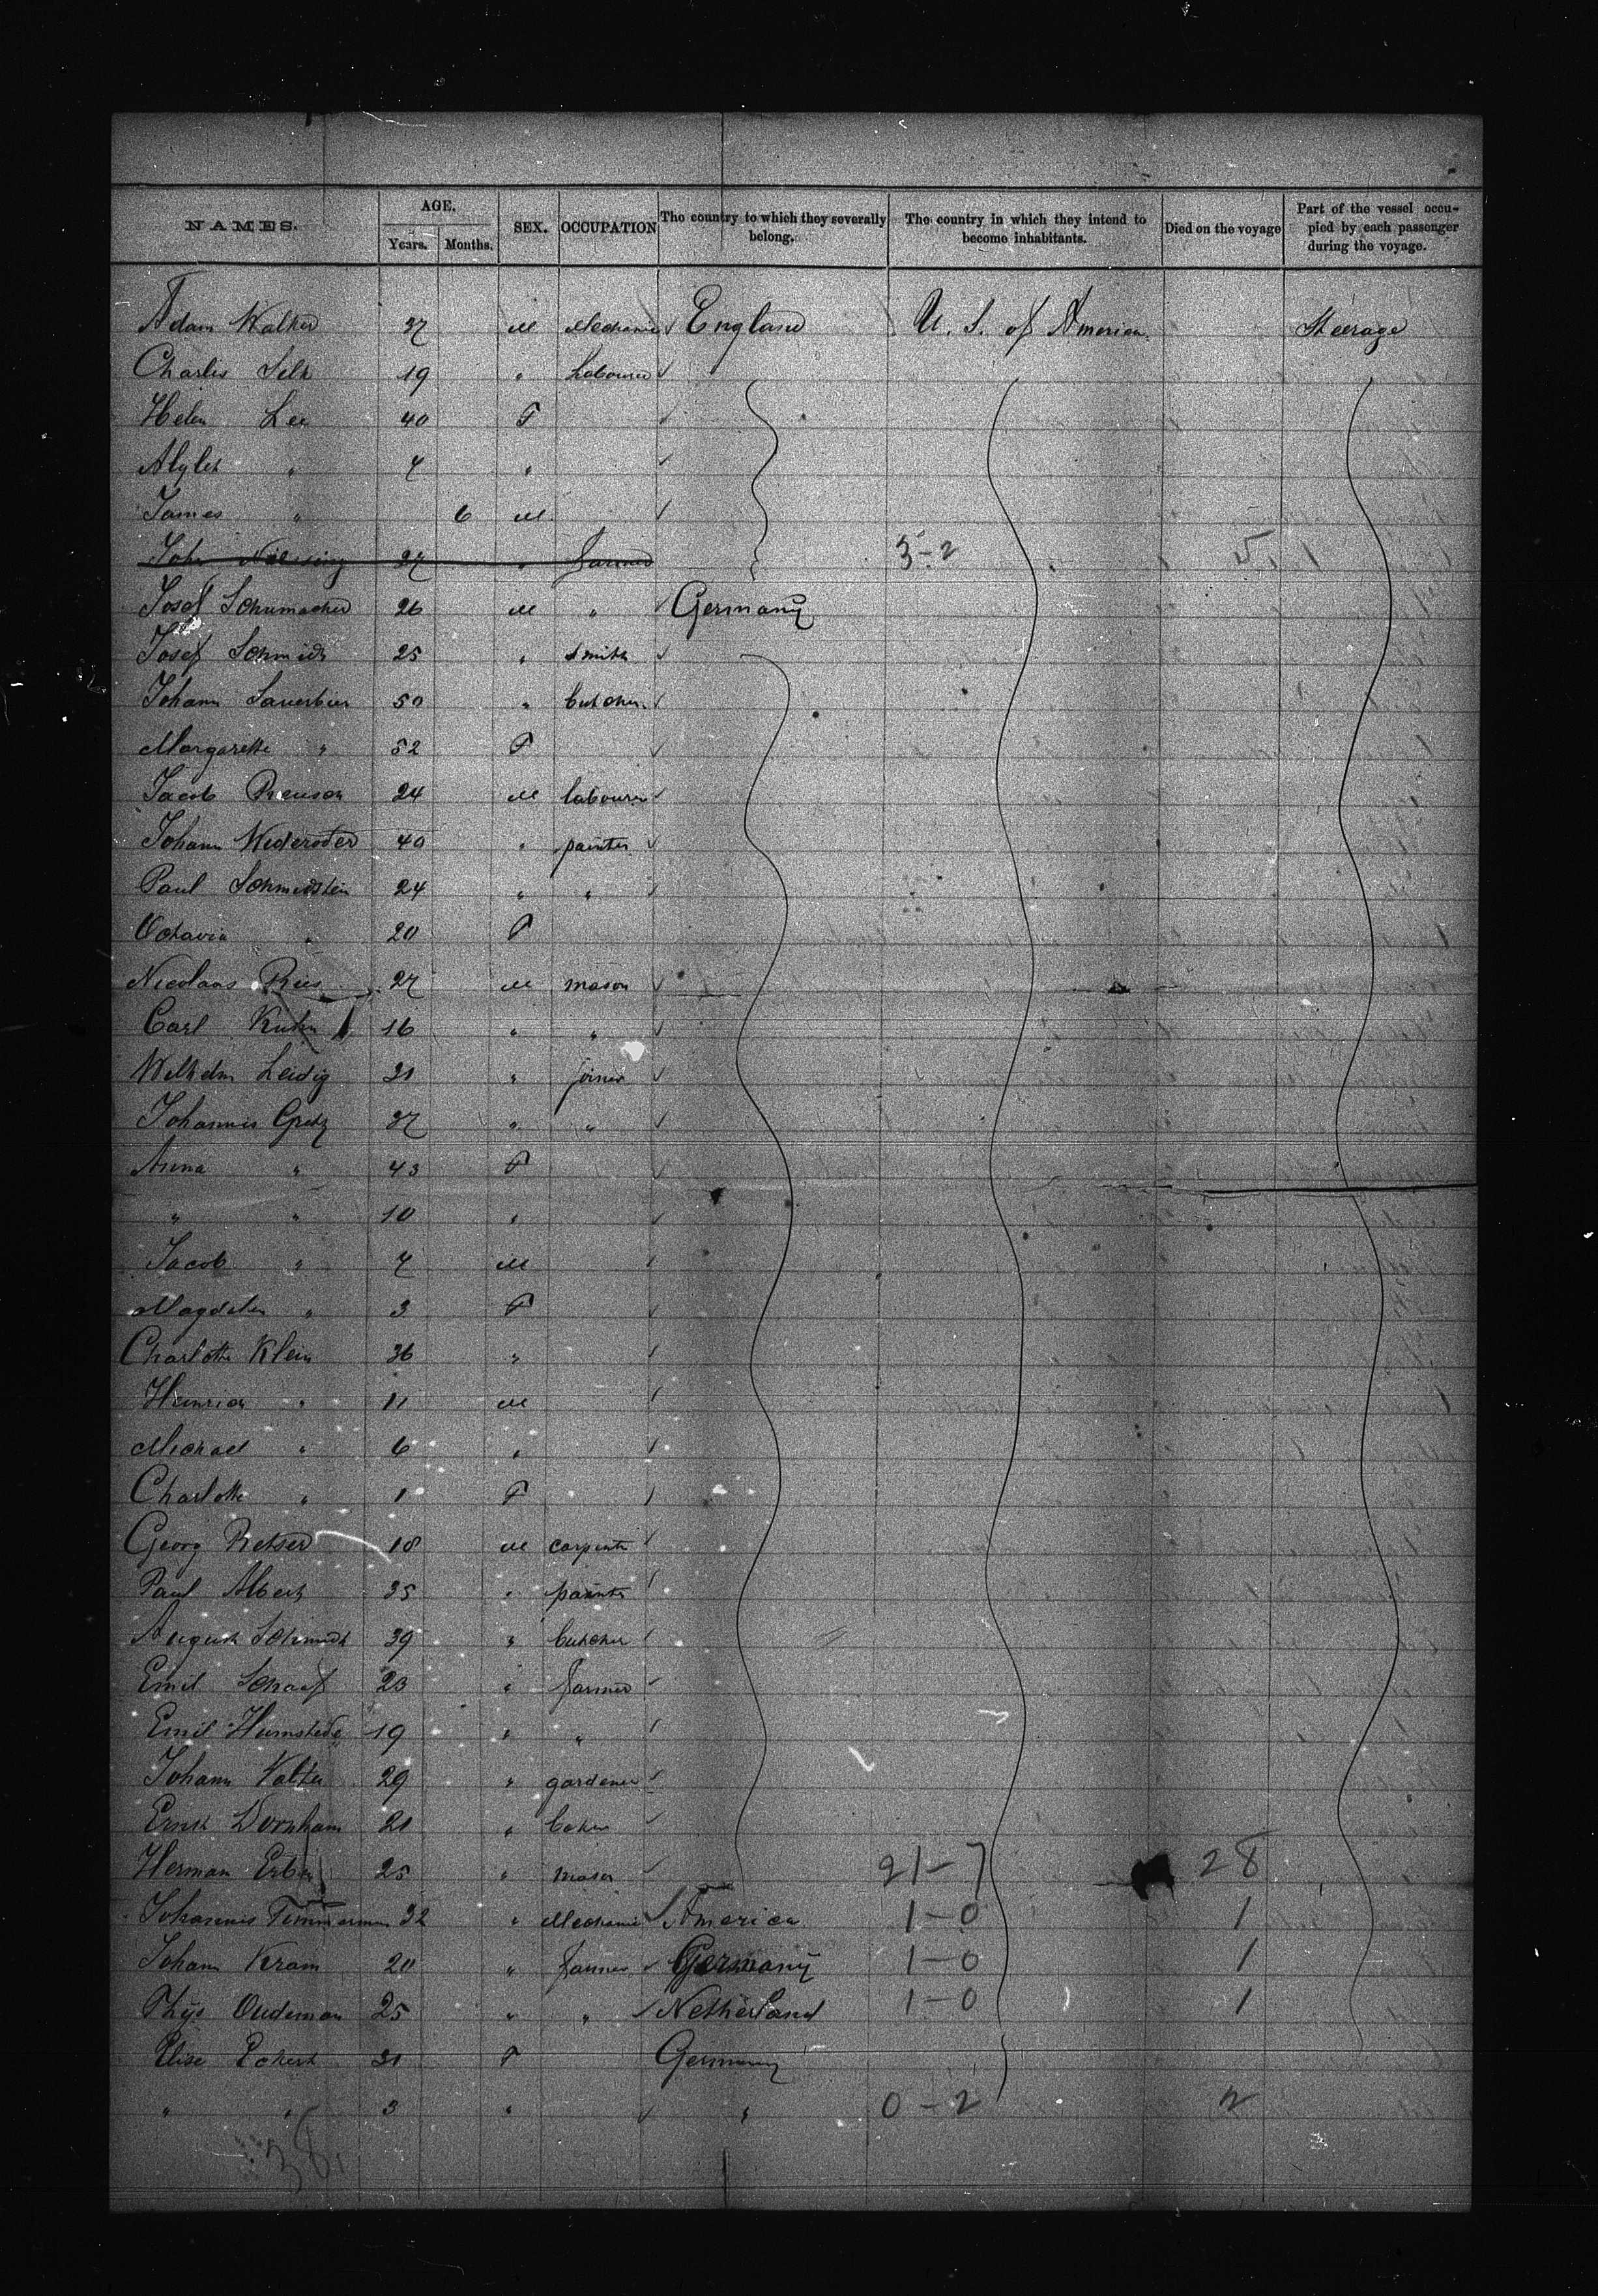 NAMES. AGE. Years. Months. SEX. OCCUPATION The country to which they severally belong. The country in which they intend to become inhabitants. Died on the voyage Part of the vessel occupied by each passenger during the voyage.
Adam Walker 37 M Mechanic England U. S. of America Steerage
Charles Selk 19 " Labourer
Helen Lee 40 F
" 7 "
James " 6 M
John 27 " farmer 3-2 5
Josef Schumacher 26 M " Germany
Josef Schmidt 25 " Smith
Johann Sauerbier 50 " butcher
Margarethe " 52 F
Jacob 24 M labourer
Johann 40 " painter
Paul 24 " "
Octavia " 20 F
Nicolaas Ries 27 M mason
Carl Kuhn 16 " "
Wilhelm Leidig 31 " joiner
Johannes Gretz 37 " "
Anna " 43 F
" " 10 "
Jacob " 7 M
Magdalen " 3 F
Charlotte Klein 36 "
Heinrich " 11 M
Michael " 6 "
Charlotte " 1 F
Georg Retser 18 M carpenter
Paul Albert 35 " painter
August Schmidt 39 " butcher
Emil Schaaf 23 " farmer
Emil 19 " "
Johann Walter 29 " gardener
Ernst Dornham 21 " baker
Herman Erber 25 " mason 21-7 28
Johannes Timmerman 32 " Mechanic America 1-0 1
Johann Kram 20 " farmer Germany 1-0 1
Thijs Oudeman 25 " " Netherland 1-0 1
Elise Eckert 31 F Germany
" " 3 " " 0-2 2
38